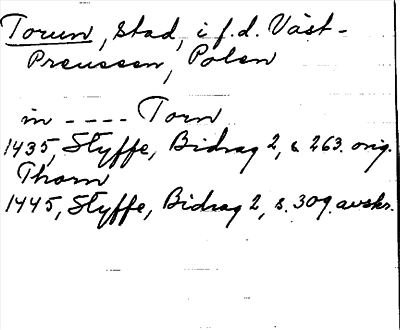 Torun, stad, i f.d. Väst-
Preussen, Polen
in ---- Torn
1435, Styffe, Bidrag 2, s. 263. orig.
Thorn
1445, Styffe, Bidrag 2, s. 309. avskr.